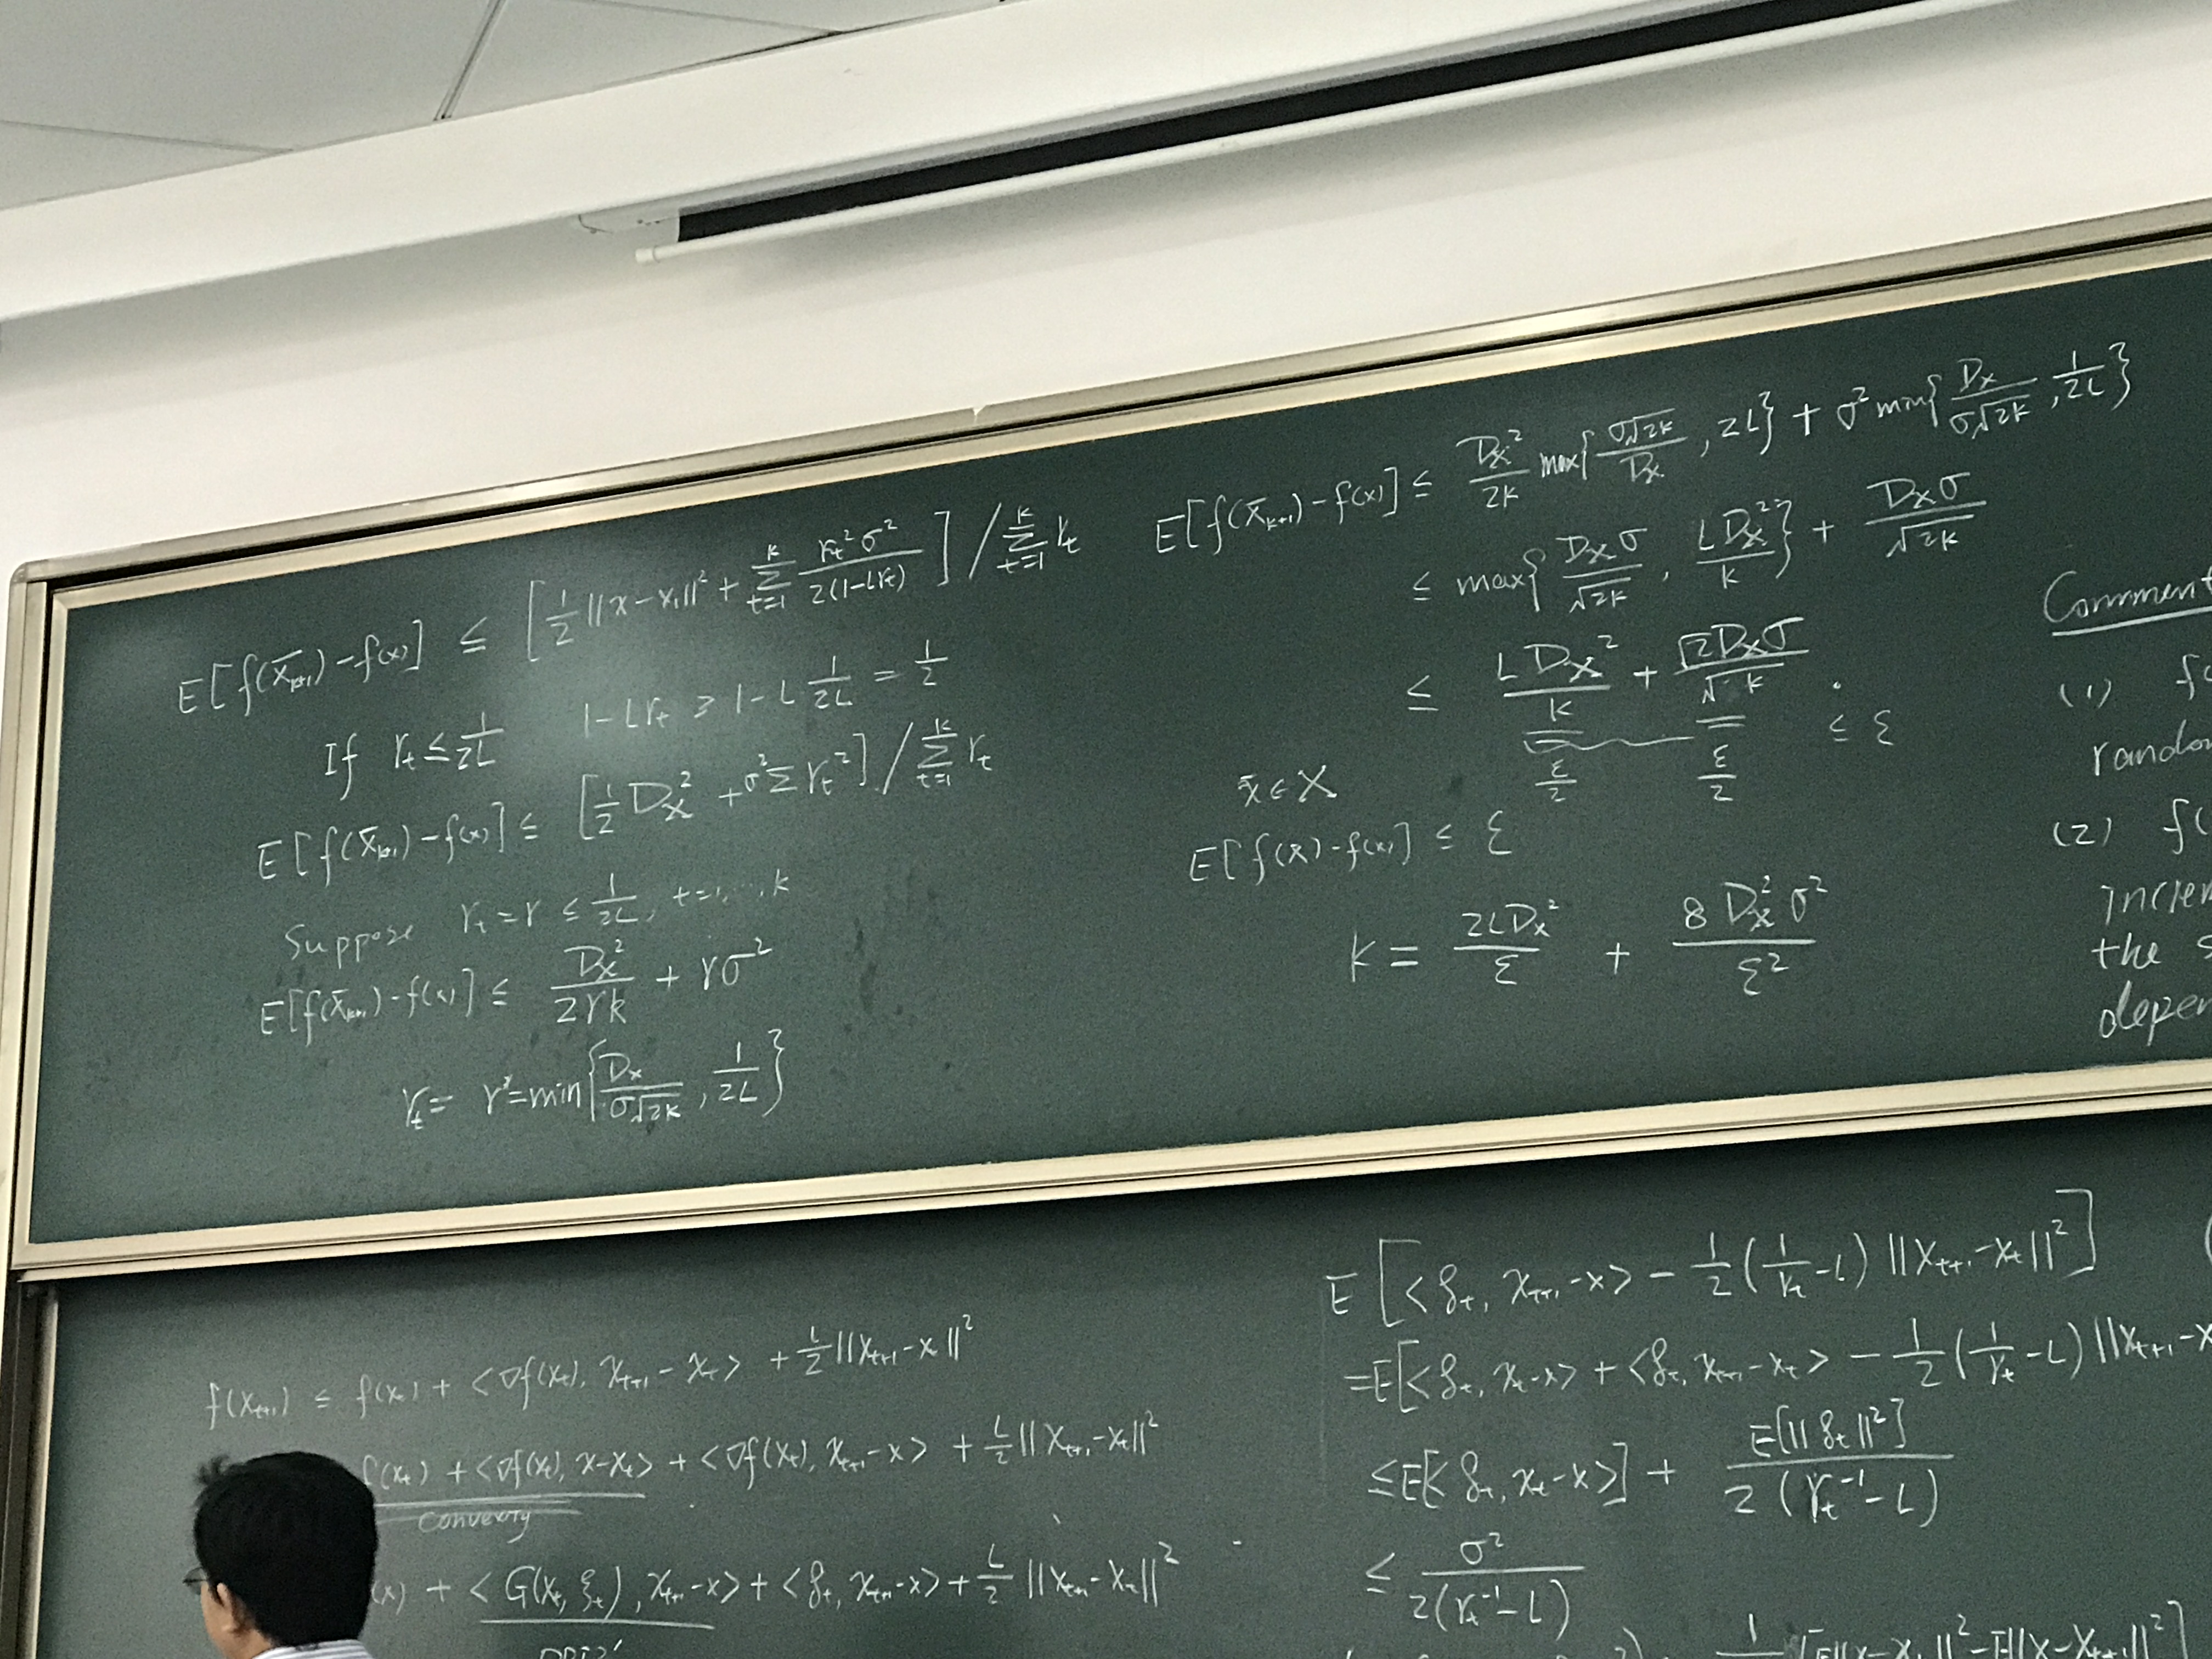 E[f(x̄_{k+1}) - f(x)] ≤ [1/2 ||x - x_1||² + Σ_{t=1}^{k} r_t² σ² / 2(1-Lr_t)] / Σ_{t=1}^{k} r_t
If r_t ≤ 1/2L 1 - Lr_t ≥ 1 - L 1/2L = 1/2
E[f(x̄_{k+1}) - f(x)] ≤ [1/2 D_X² + σ² Σ r_t²] / Σ_{t=1}^{k} r_t
Suppose r_t = r ≤ 1/2L, t=1,...,k
E[f(x̄_{k+1}) - f(x)] ≤ D_X² / 2rk + rσ²
r_t = r* = min{D_X / σ√2k, 1/2L}
E[f(x̄_{k+1}) - f(x)] ≤ D_X² / 2k max{σ√2k / D_X, 2L} + σ² min{D_X / σ√2k, 1/2L}
≤ max{D_X σ / √2k, L D_X² / k} + D_X σ / √2k
≤ L D_X² / k + √2 D_X σ / √k ≤ ε
ε/2 ε/2
x̄ ∈ X
E[f(x̄) - f(x)] ≤ ε
k = 2LD_X² / ε + 8 D_X² σ² / ε²
Comment
(1) f(
rando
(2) f(
increm
the s
depen
f(x_{t+1}) ≤ f(x_t) + <∇f(x_t), x_{t+1} - x_t> + L/2 ||x_{t+1} - x_t||²
f(x_t) + <∇f(x_t), x - x_t> + <∇f(x_t), x_{t+1} - x> + L/2 ||x_{t+1} - x_t||²
convexity
(x) + <G(x_t, ξ_t), x_{t+1} - x> + <δ_t, x_{t+1} - x> + L/2 ||x_{t+1} - x_t||²
E[<δ_t, x_{t+1} - x> - 1/2 (1/r_t - L) ||x_{t+1} - x_t||²]
= E[<δ_t, x_t - x> + <δ_t, x_{t+1} - x_t> - 1/2 (1/r_t - L) ||x_{t+1} - x
≤ E[<δ_t, x_t - x>] + E[||δ_t||²] / 2(r_t^{-1} - L)
≤ σ² / 2(r_t^{-1} - L)